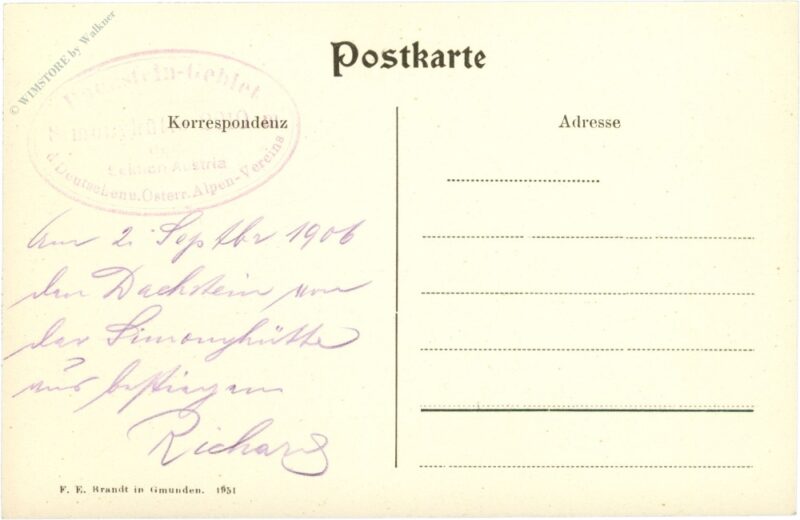 © WIMSTORE by Walkner
Postkarte
Dachstein-Gebiet
Simonyhütte
der
Sektion Austria
d. Deutschen u. Österr. Alpen-Vereins
Korrespondenz
Adresse
Am 2. Septbr 1906
den Dachstein von
der Simonyhütte
aus bestiegen
Richard
F. E. Brandt in Gmunden. 1951